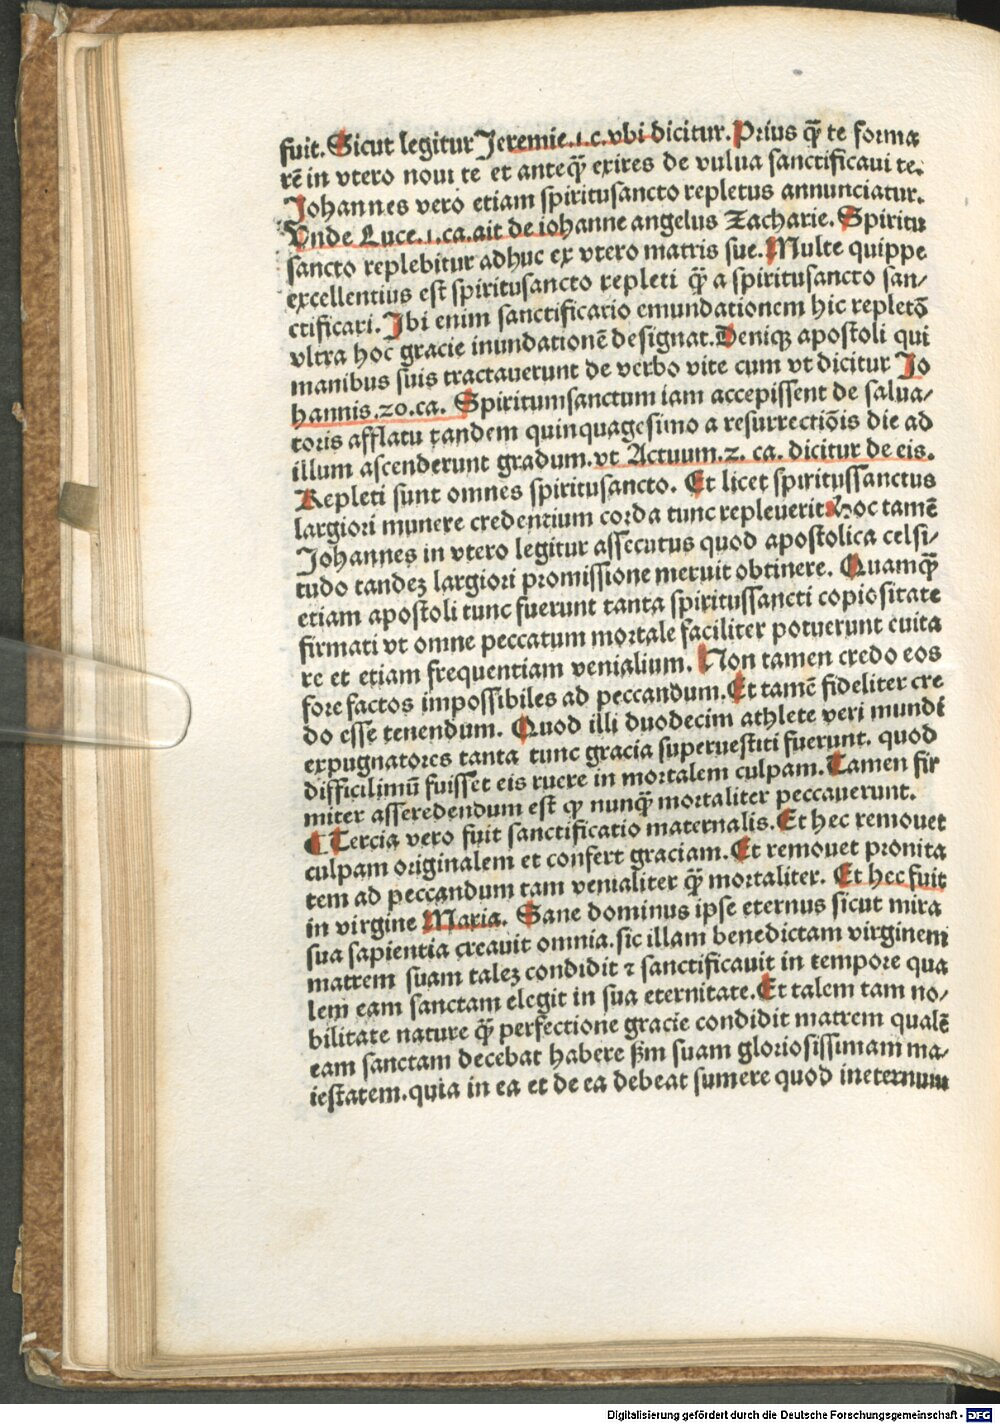 fuit. Sicut legitur Jeremie.1.c.vbi dicitur. Prius q̃ te forma
rẽ in vtero noui te et anteq̃ exires de vulua sanctificaui te.
Johannes vero etiam spiritusancto repletus annunciatur.
Vnde Luce.1.ca.ait de iohanne angelus Zacharie. Spiritu
sancto replebitur adhuc ex vtero matris sue. Multe quippe
excellentius est spiritusancto repleti q̃ a spiritusancto san/
ctificari. Jbi enim sanctificatio emundationem hic repletõ
vltra hoc gracie inundationẽ designat. Deniqꝫ apostoli qui
manibus suis tractauerunt de verbo vite cum vt dicitur Jo
hannis.20.ca. Spiritumsanctum iam accepissent de salua/
toris afflatu tandem quinquagesimo a resurrectiõis die ad
illum ascenderunt gradum.vt Actuum.2. ca. dicitur de eis.
Repleti sunt omnes spiritusancto. Et licet spiritussanctus
largiori munere credentium corda tunc repleuerit hoc tamẽ
Johannes in vtero legitur assecutus quod apostolica celsi/
tudo tandeꝫ largiori promissione meruit obtinere. Quamq̃
etiam apostoli tunc fuerunt tanta spiritussancti copiositate
firmati vt omne peccatum mortale faciliter potuerunt euita
re et etiam frequentiam venialium. Non tamen credo eos
fore factos impossibiles ad peccandum. Et tamẽ fideliter cre
do esse tenendum. Quod illi duodecim athlete veri mundi
expugnatores tanta tunc gracia superuestiti fuerunt. quod
difficilimũ fuisset eis ruere in mortalem culpam. Tamen fir
miter asseredendum est ꝙ nunq̃ mortaliter peccauerunt.
¶ Tercia vero fuit sanctificatio maternalis. Et hec remouet
culpam originalem et confert graciam. Et remouet pronita
tem ad peccandum tam venialiter q̃ mortaliter. Et hec fuit
in virgine Maria. Sane dominus ipse eternus sicut mira
sua sapientia creauit omnia. sic illam benedictam virginem
matrem suam taleꝫ condidit ⁊ sanctificauit in tempore qua
lem eam sanctam elegit in sua eternitate. Et talem tam no/
bilitate nature q̃ perfectione gracie condidit matrem qualẽ
eam sanctam decebat habere ẜm suam gloriosissimam ma/
iestatem.quia in ea et de ea debeat sumere quod ineternum
Digitalisierung gefördert durch die Deutsche Forschungsgemeinschaft - DFG